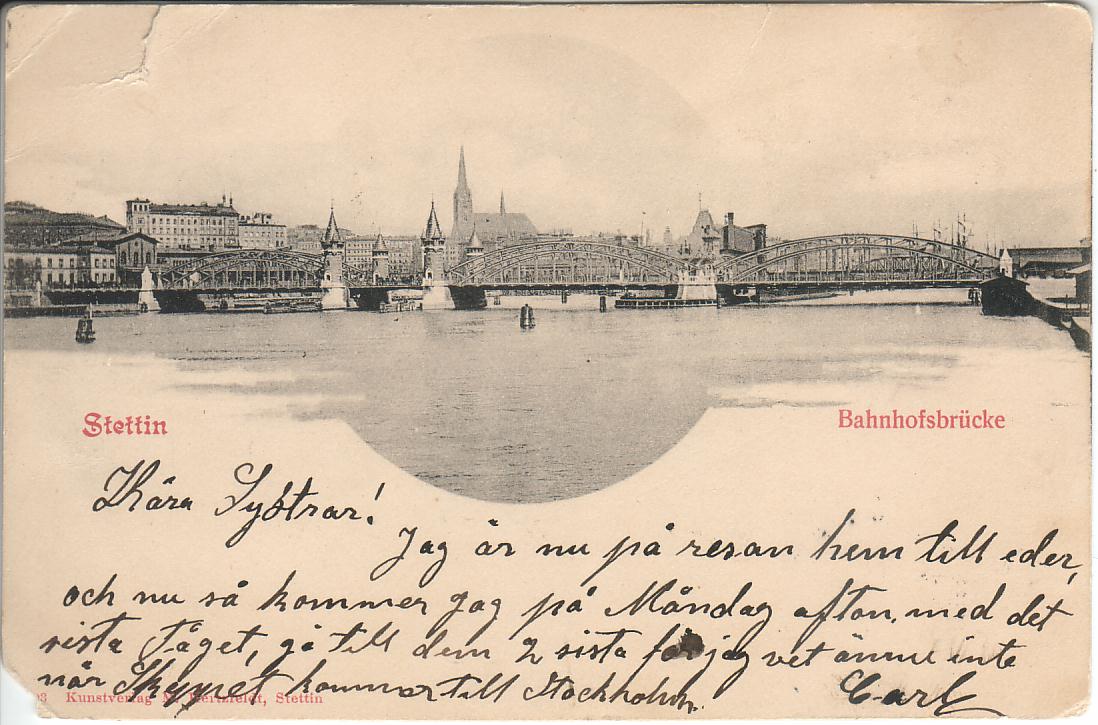 Stettin
Bahnhofsbrücke
Kära Systrar!
Jag är nu på resan hem till eder,
och nu så kommer jag på Måndag afton, med det
sista Tåget, gå till dem 2 sista för jag vet ännu inte
när Skeppet kommer till Stockholm.
Carl
Kunstverlag M. Hertzfeldt, Stettin